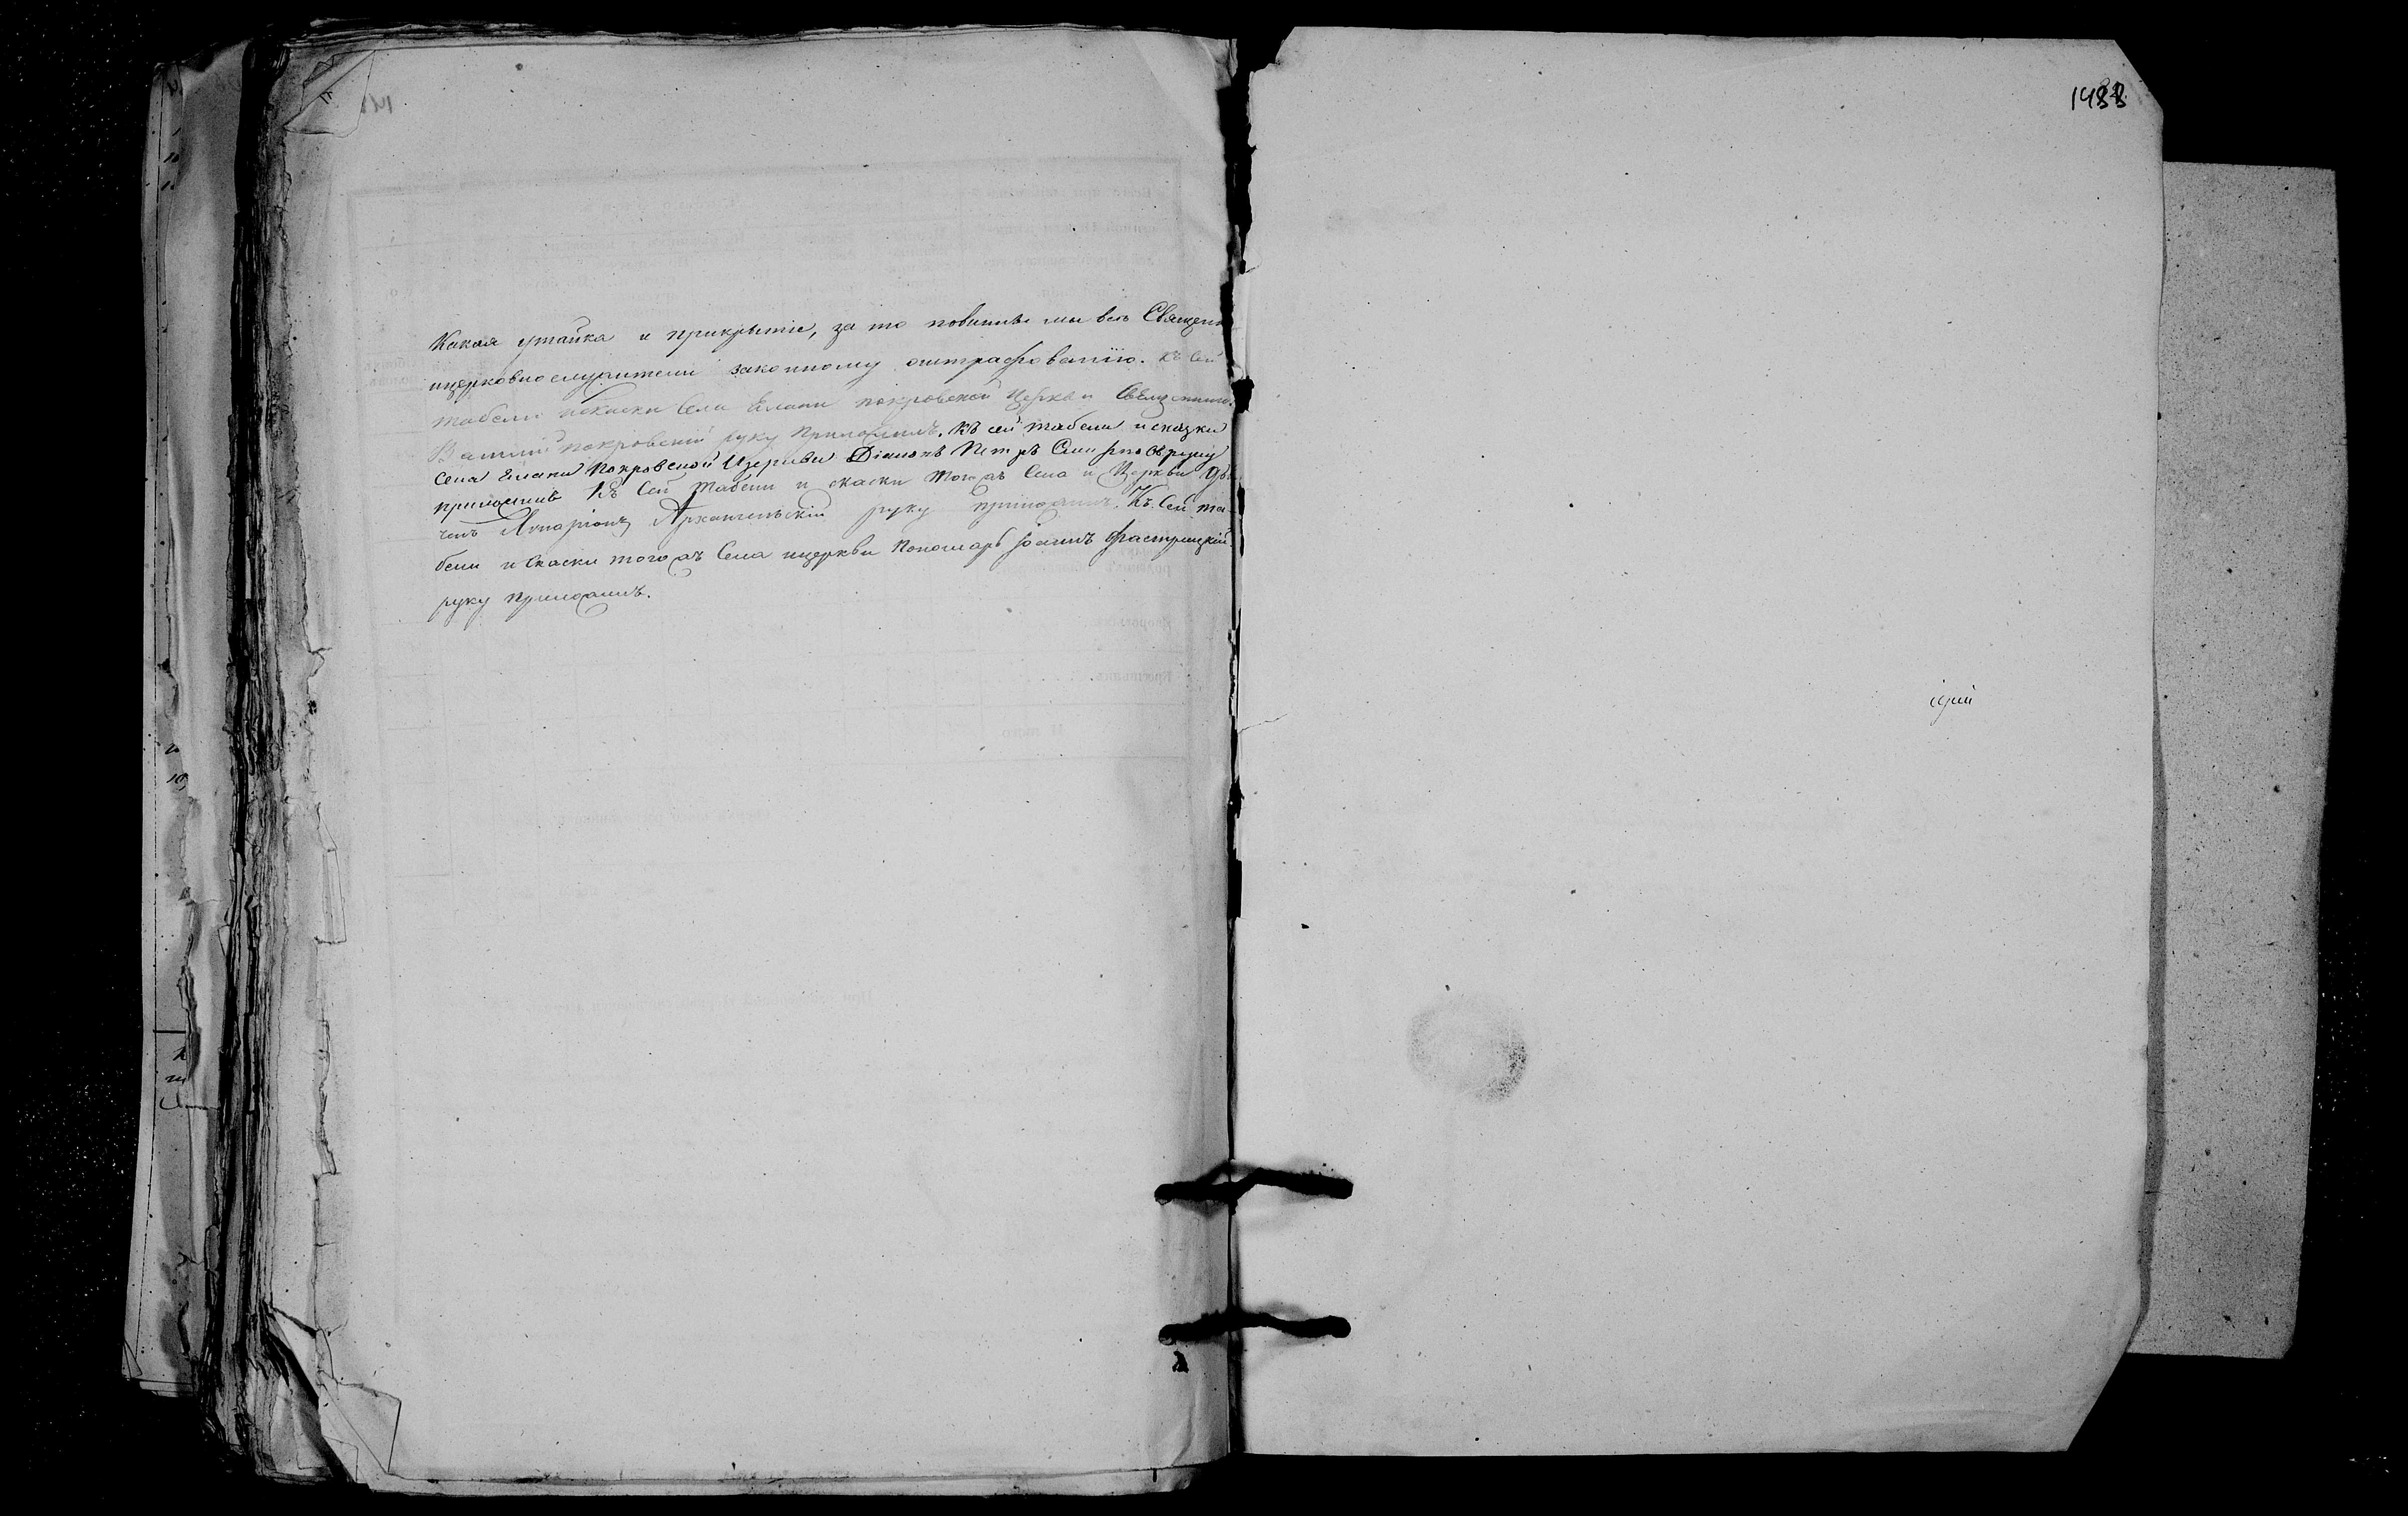 1488
Какая утайка и прикрытіе, за то повинны мы всѣ Священн
ицерковнослужители законному оштрафованію. Къ сей
табели искаски Села Елани покровской Церкви Священник
Василій покровскій руку Приложилъ. Къ сей табели и сказки
села Елани Покровской Церкви Діаконъ Петръ руку
приложилъ Къ Сей табели и скаски тогожъ Села и Церкви Дья
чекъ Иларіонъ Архангельскій руку приложилъ. Къ Сей та-
бели и Скаски тогожъ Села ицеркви Пономарь Іоаннъ
руку приложилъ.